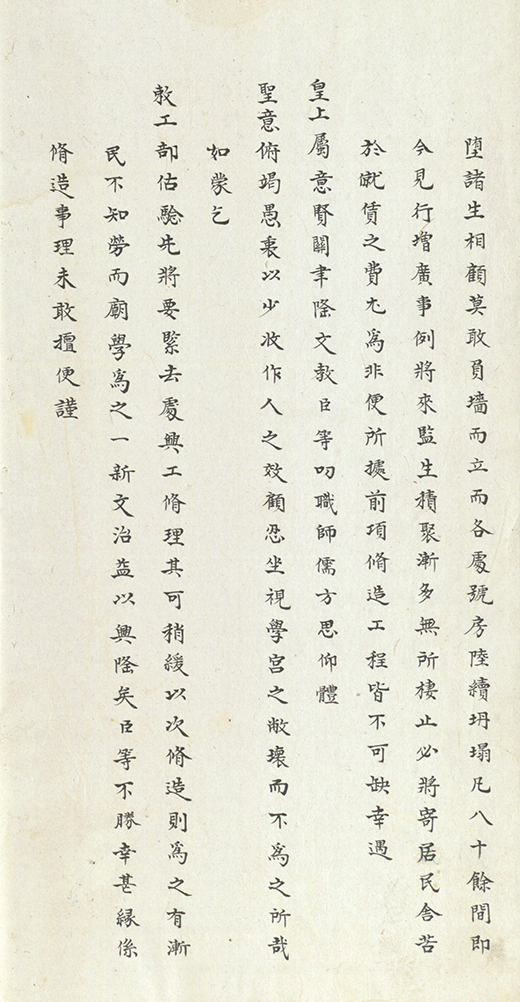 墮諸生相顧莫敢負墻而立而各處號房陸續坍塌凡八十餘間即
今見行增廣事例將來監生積聚漸多無所棲止必將寄居民舍苦
於僦賃之費尤爲非便所據前項脩造工程皆不可缺幸遇
皇上屬意賢關聿隆文敎臣等叨職師儒方思仰體
聖意俯竭愚衷以少收作人之效顧忍坐視學宮之敝壞而不爲之所哉
如蒙乞
敕工部估驗先將要緊去處興工脩理其可稍緩以次脩造則爲之有漸
民不知勞而廟學爲之一新文治益以興隆矣臣等不勝幸甚緣係
脩造事理未敢擅便謹